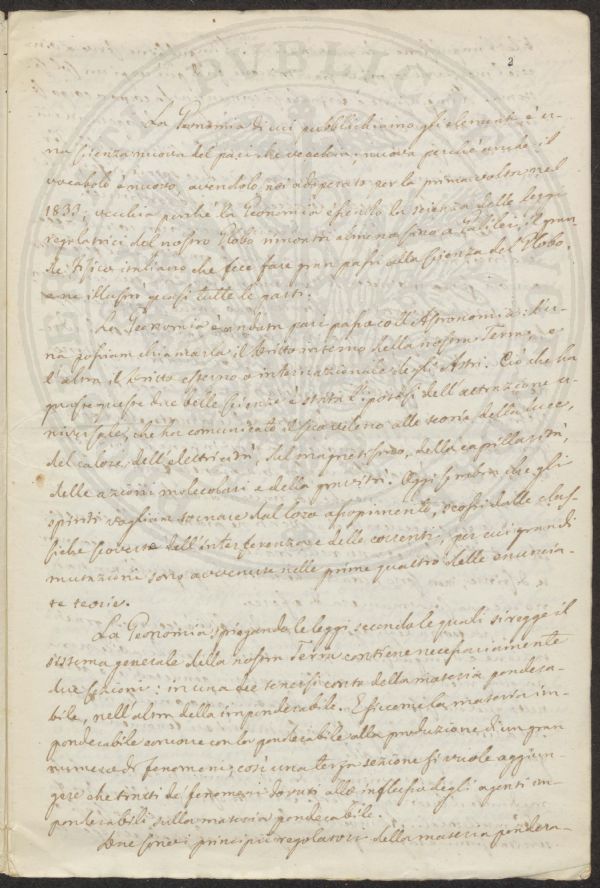 2
La Geonomia di cui pubblichiamo gli elementi è u-
na scienza nuova del pari che vecchia: nuova perchè anche il
vocabolo è nuovo, avendolo noi adoperato per la prima volta nel
1833; vecchia perchè la Geonomia essendo la scienza delle leggi
regolatrici del nostro Globo rimonta almeno sino a Galilei, il gran-
de fisico italiano che fece fare gran passi alla scienza del Globo,
e ne illustrò quasi tutte le parti.
La Geonomia è andata pari passo coll'Astronomia: l'u-
na possiam chiamarla il dritto interno della nostra Terra, e
l'altra il dritto esterno o internazionale degli Astri. Ciò che ha
guaste queste due belle scienze è stata l'ipotesi dell'attrazione u-
niversale, che ha comunicato il suo veleno alle teorie della luce,
del calore, dell'elettricità, del magnetismo, della capillarità,
delle azioni molecolari e della gravità. Oggi sembra che gli
spiriti vogliano tornare dal loro assopimento, scossi dalle clas-
siche scoverte dell'interferenza e delle correnti, per cui grandi
mutazioni sono avvenute nelle prime quattro delle enuncia-
te teorie.
La Geonomia spiegando le leggi secondo le quali si regge il
sistema generale della nostra Terra contiene necessariamente
due sezioni: in una dee tenersi conto della materia pondera-
bile, nell'altra della imponderabile. E siccome la materia im-
ponderabile concorre con la ponderabile alla produzione di un gran
numero di fenomeni, così una terza sezione si vuole aggiun-
gere che tratti de' fenomeni dovuti allo influsso degli agenti im-
ponderabili sulla materia ponderabile.
Due sono i principii regolatori della materia pondera-